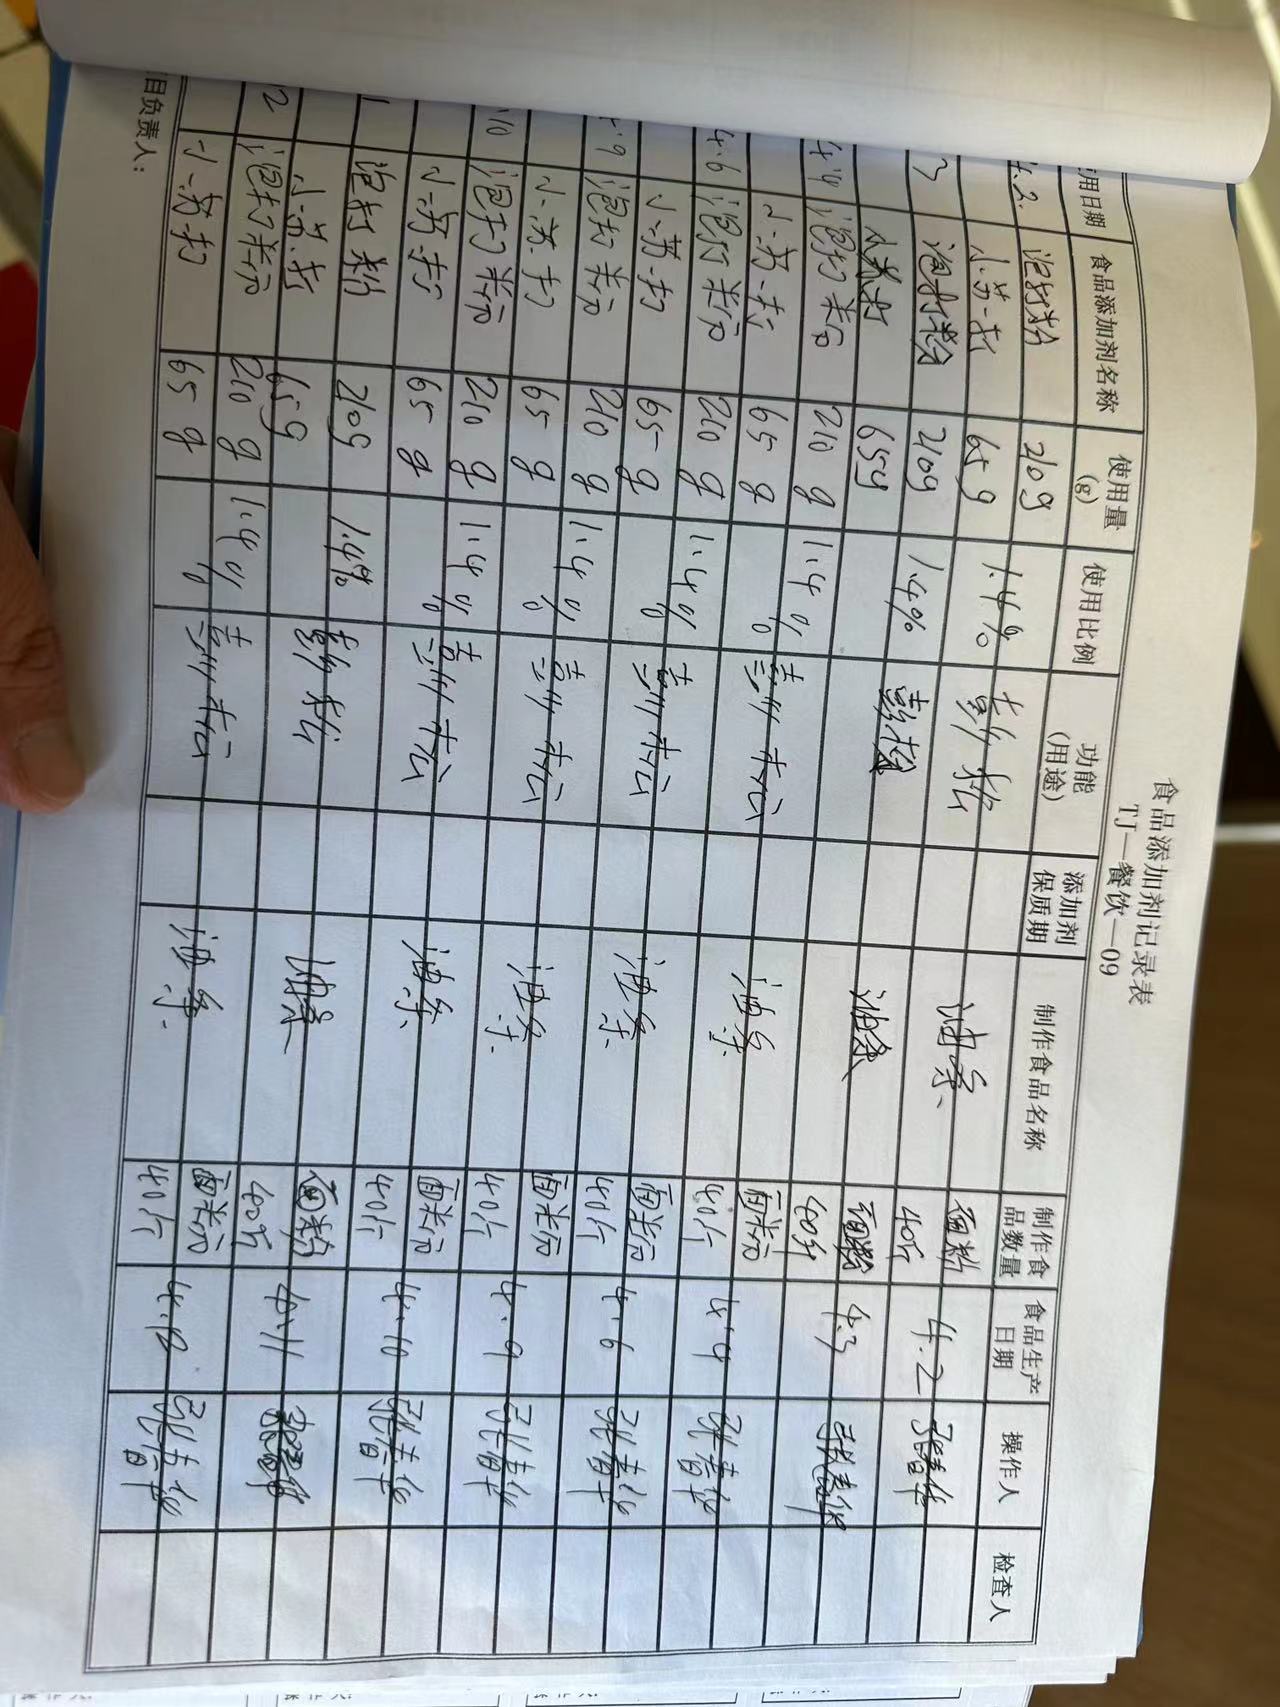 食品添加剂记录表
TJ—餐饮—09
用日期 食品添加剂名称 使用量(g) 使用比例 功能(用途) 添加剂保质期 制作食品名称 制作食品数量 食品生产日期 操作人 检查人
4.2. 泡打粉 210g 1.4% 膨松 油条、 面粉 40斤 4.2 张春华
小苏打 65g
3 泡打粉 210g 1.4% 膨松 油条 面粉 40斤 4.3 张春华
小苏打 65g
4.4 泡打粉 210 g 1.4% 膨松 油条. 面粉 40斤 4.4 张春华
小苏打 65 g
4.6 泡打粉 210 g 1.4% 膨松 油条. 面粉 40斤 4.6 张春华
小苏打 65 g
4.9 泡打粉 210 g 1.4% 膨松 油条. 面粉 40斤 4.9 张春华
小苏打 65 g
.10 泡打粉 210 g 1.4% 膨松 油条. 面粉 40斤 4.10 张春华
小苏打 65 g
1 泡打粉 210g 1.4% 膨松 油条 面粉 40斤 4.11 张春华
小苏打 65g
2 泡打粉 210 g 1.4% 膨松 油条. 面粉 40斤 4.12 张春华
小苏打 65 g
目负责人：